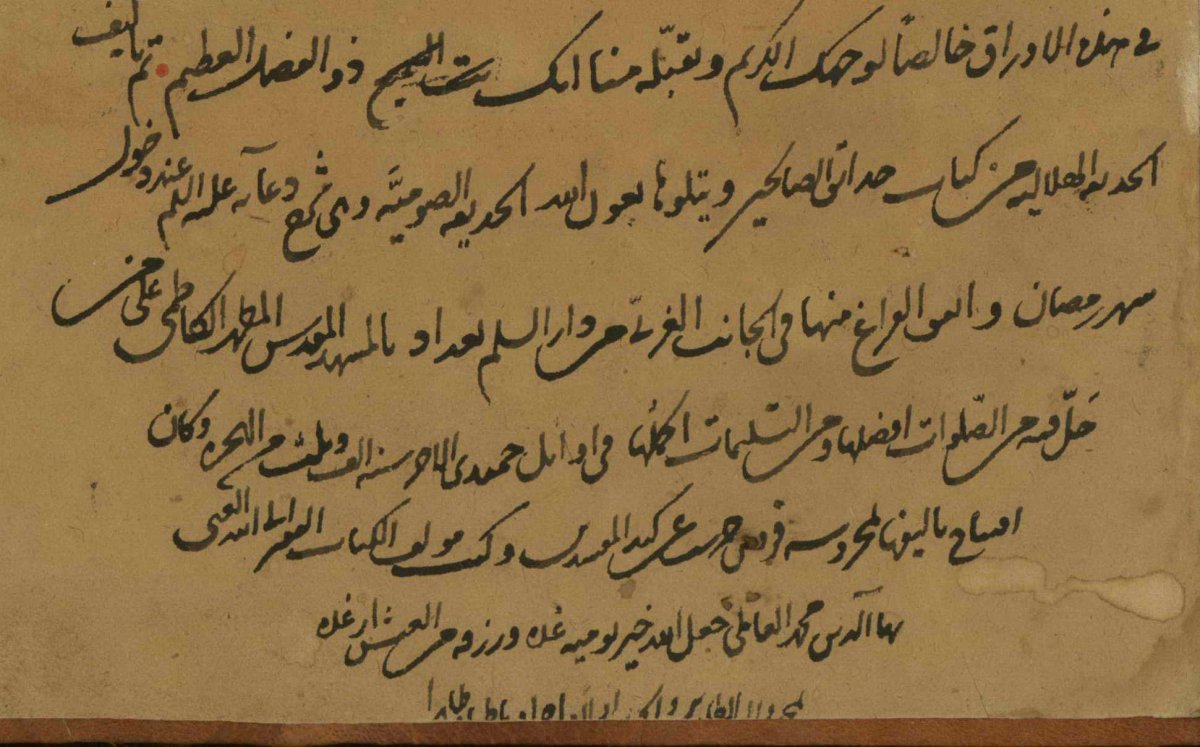 في هذه الاوراق خالصًا لوجهك الكريم وتقبّله منا انك انت السميع ذو الفضل العظيم تم تاليف
الحديقه الهلاليه من كتاب حدائق الصالحين ويتلوها بعون الله الحديقه الصوميَّه وهي شرح دعائه عليه السلم عند دخول
شهر رمضان واتفق الفراغ منها في الجانب الغربّي من دار السلم بغداد بالمشهد المقدس المطهر الكاظمي على من
حَلّ فيه من الصّلوات افضلها ومن التسليمات اكملُها في اوائل جميدى الاخر سنه الف وثلث من الهجره وكان
افتتاح تاليفها بمحروسه قزوين حرست عن كيد المفسدين وكتب مولف الكتاب الفقير الى الله الغني
بهاآلدين محمد العاملي جعل الله خير يوميه غده ورزقه من العيش ارغده